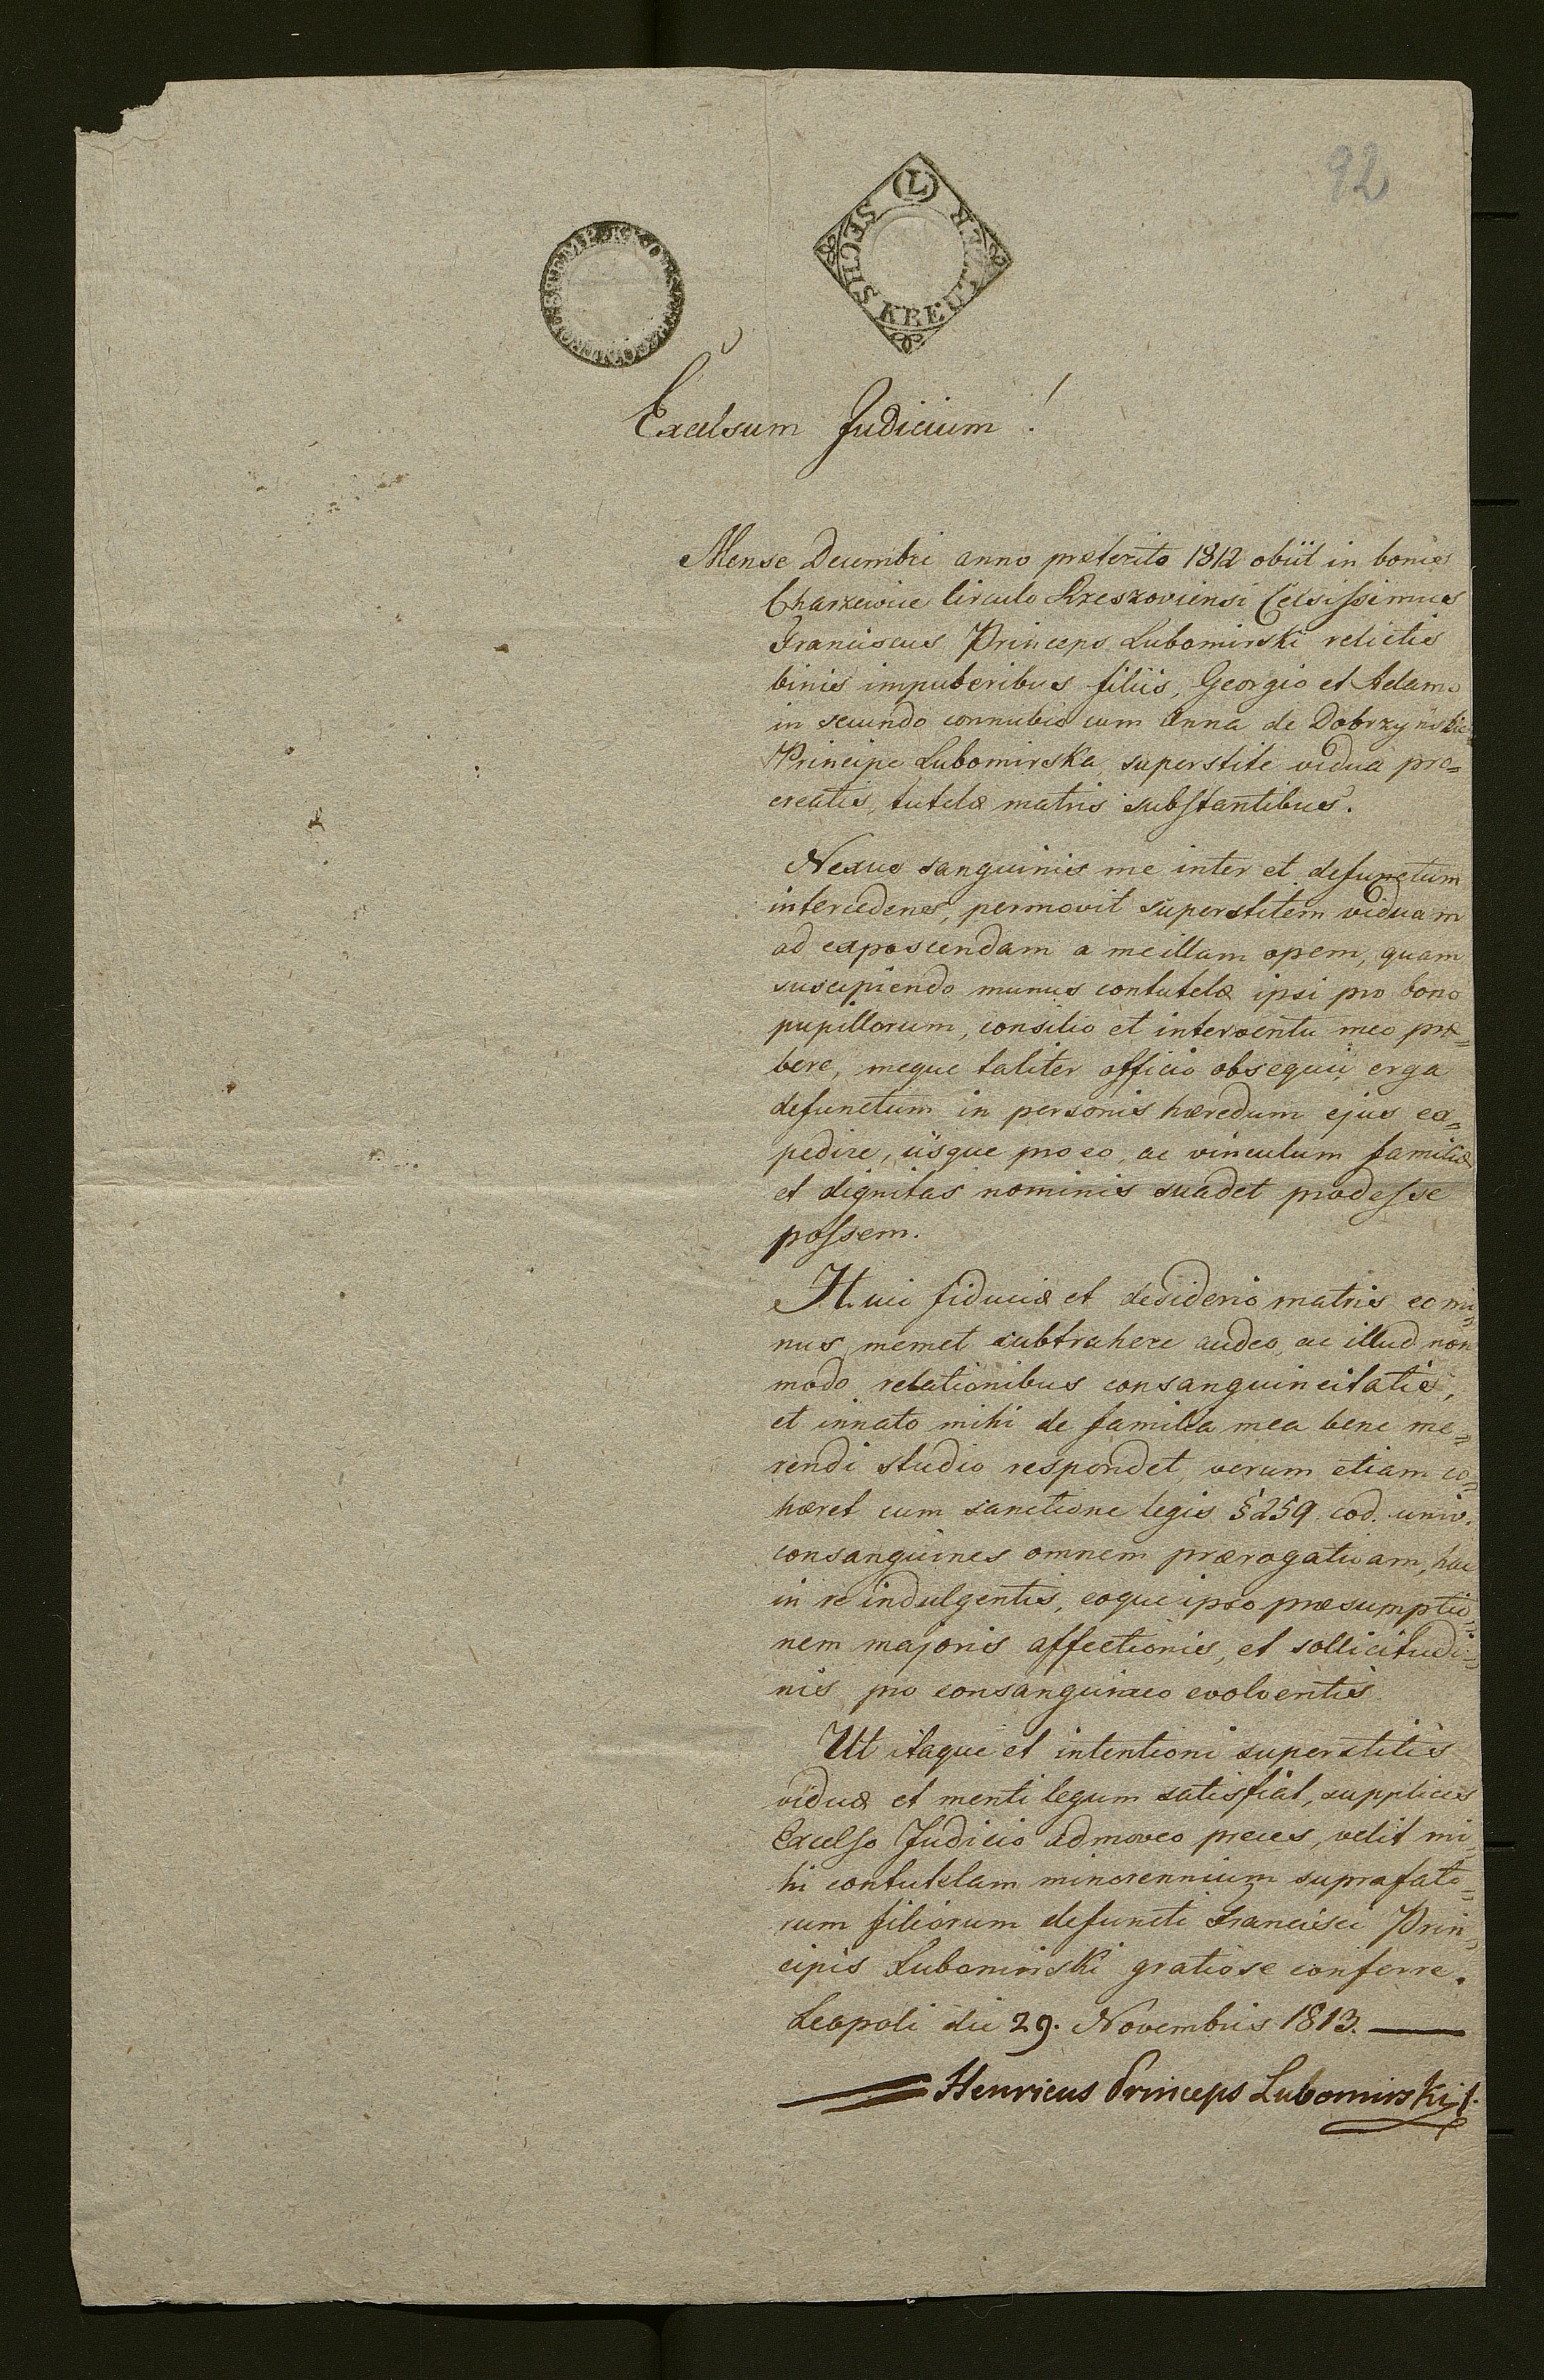 92
(L)
SECHS KREUTZER
Excelsum Judicium!
Mense Decembri anno præterito 1812 obiit in bonis
Charzewice Circulo Rzeszoviensi Celsissimus
Franciscus Princeps Lubomirski relictis
binis impuberibus filiis, Georgio et Adamo
in secundo connubio cum Anna de Dobrzyńskie
Principe Lubomirska, superstite vidua pro=
creatis, tutelæ matris substantibus.
Nexus sanguinis me inter et defunctum
intercedens, permovit superstitem viduam
ad exposcendam a me illam opem, quam
suscipiendo munus contutelæ ipsi pro bono
pupillorum, consilio et interventu meo præ=
bere, meque taliter officio obsequii erga
defunctum in personis hæredum ejus ex=
pedire, iisque pro eo, ac vinculum familiæ
et dignitas nominis suadet prodesse
possem.
Huic fiduciæ et desiderio matris eo mi=
nus memet subtrahere audeo, ac illud non
modo relationibus consanguineitatis,
et innato mihi de familia mea bene me=
rendi studio respondet, verum etiam co=
hæret cum sanctione legis § 259. cod. univ.
consanguines omnem prærogativam, hac
in re indulgentis, eoque ipso præsumptio=
nem majoris affectionis, et sollicitudi=
nis pro consanguineo evolventis.
Ut itaque et intentioni superstitis
viduæ et menti legum satisfiat, supplices
Excelso Judicio admoveo preces, velit mi=
hi contutelam minorennium suprafato=
rum filiorum defuncti Francisci Prin=
cipis Lubomirski gratiose conferre.
Leopoli die 29. Novembris 1813.
Henricus Princeps Lubomirski